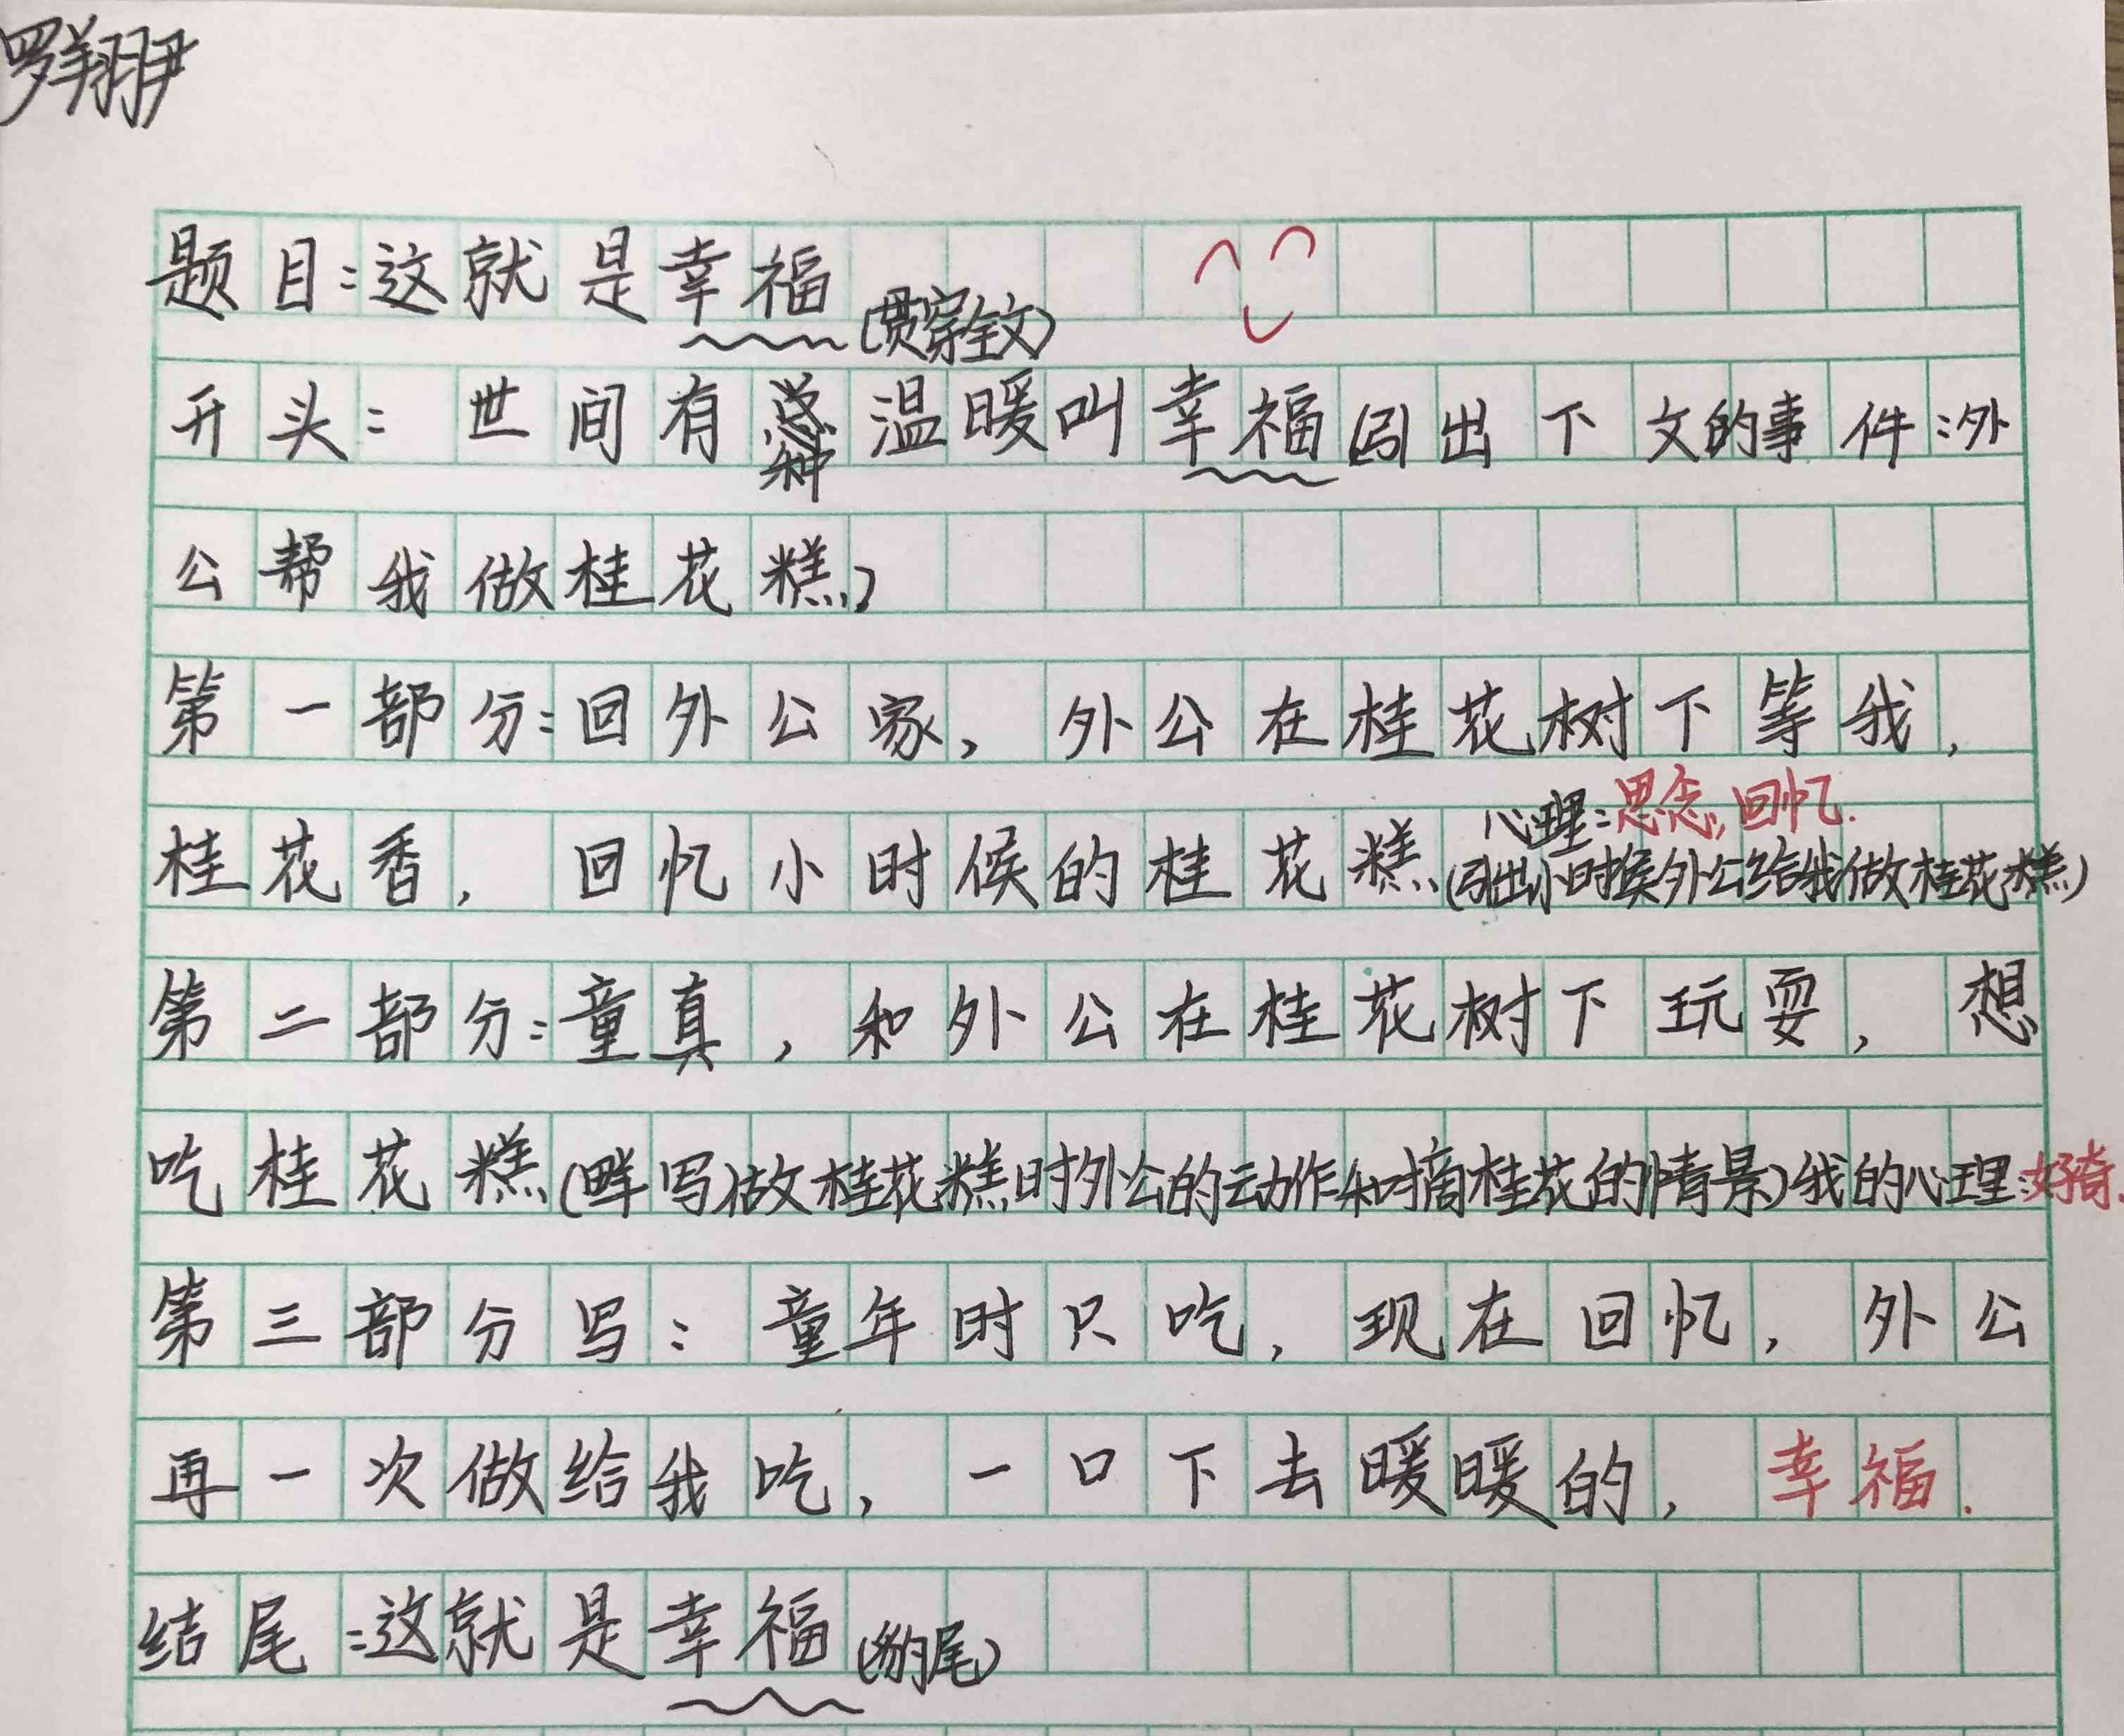 罗翔尹
题目:这就是幸福
(贯穿全文)
开头: 世间有种温暖叫幸福(引出下文的事件:外
公帮我做桂花糕)
第一部分:回外公家,外公在桂花树下等我,
心理:思念,回忆.
桂花香,回忆小时候的桂花糕(引出小时候外公给我做桂花糕)
第二部分:童真,和外公在桂花树下玩耍,想
吃桂花糕(详写)做桂花糕时外公的动作和摘桂花的情景)我的心理:好奇.
第三部分写:童年时只吃,现在回忆,外公
再一次做给我吃,一口下去暖暖的,幸福.
结尾:这就是幸福(豹尾)